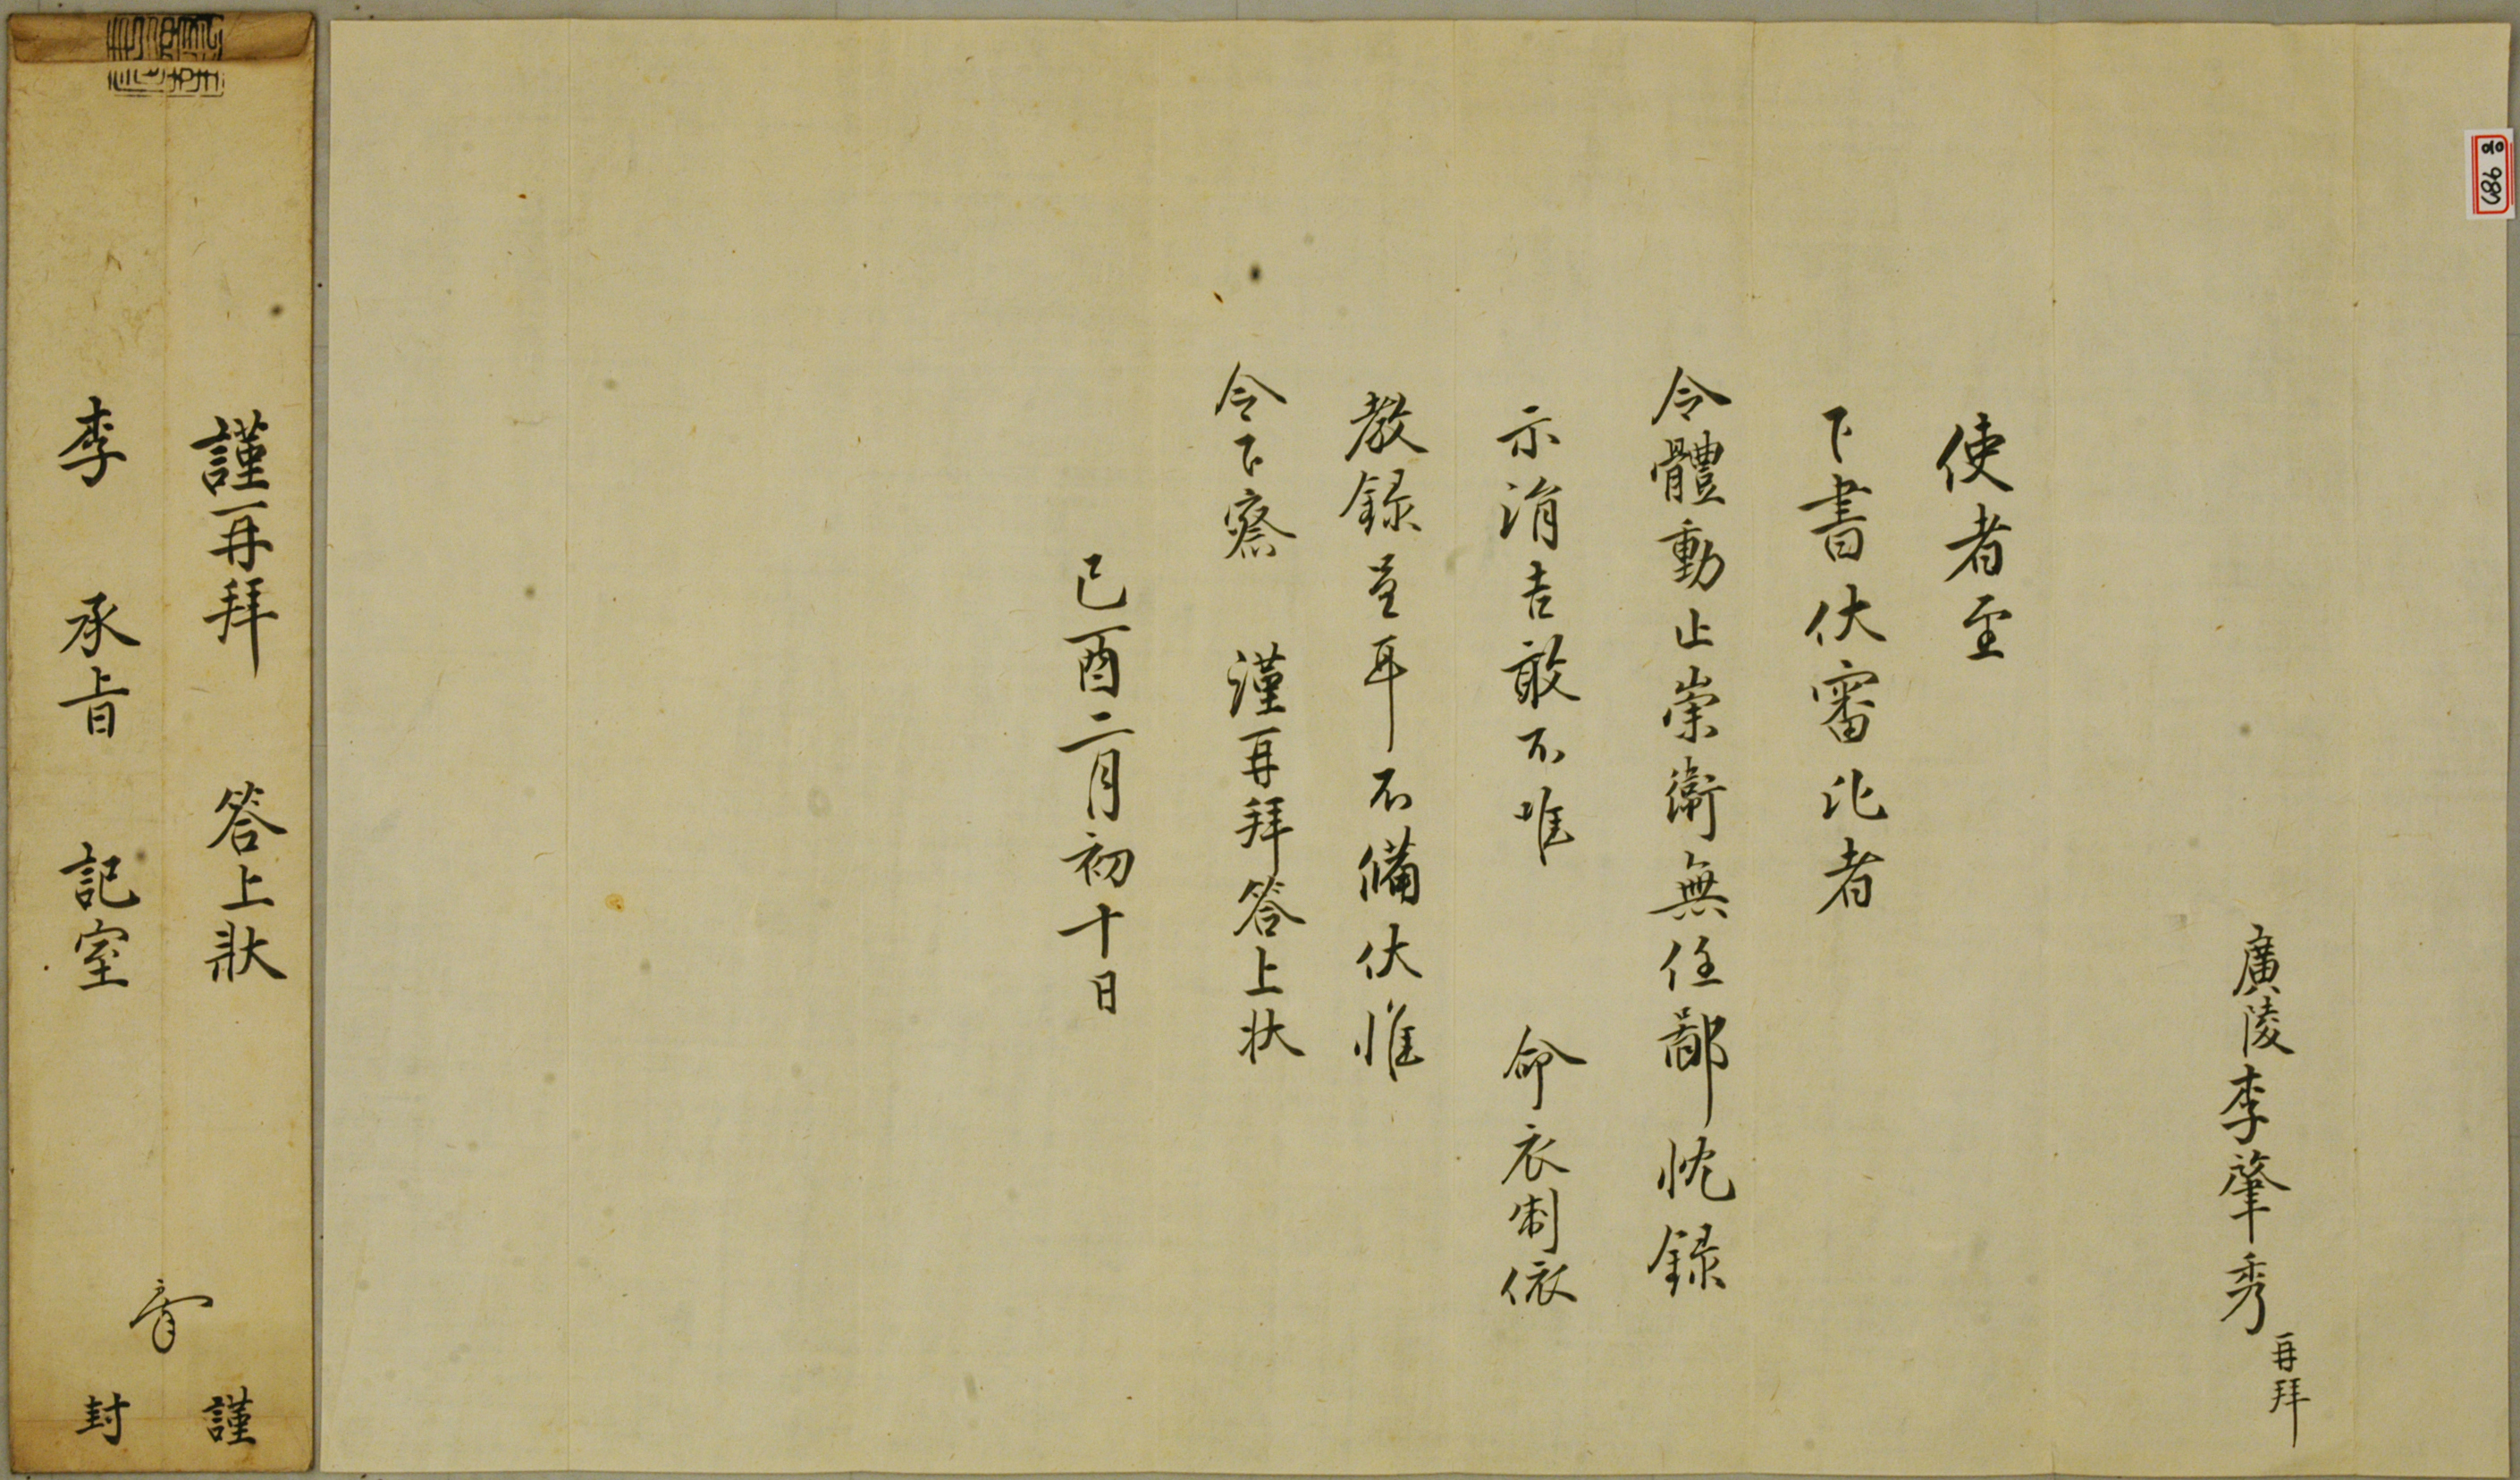 廣陵李肇秀
再拜
使者至
下書伏審比者
令體動止崇衛無任鄙忱錄
示涓吉敢不唯 命衣制依
教錄呈耳不備伏惟
令下察 謹再拜答上狀
己酉二月初十日
謹再拜 答上狀
李 承旨 記室
謹
封